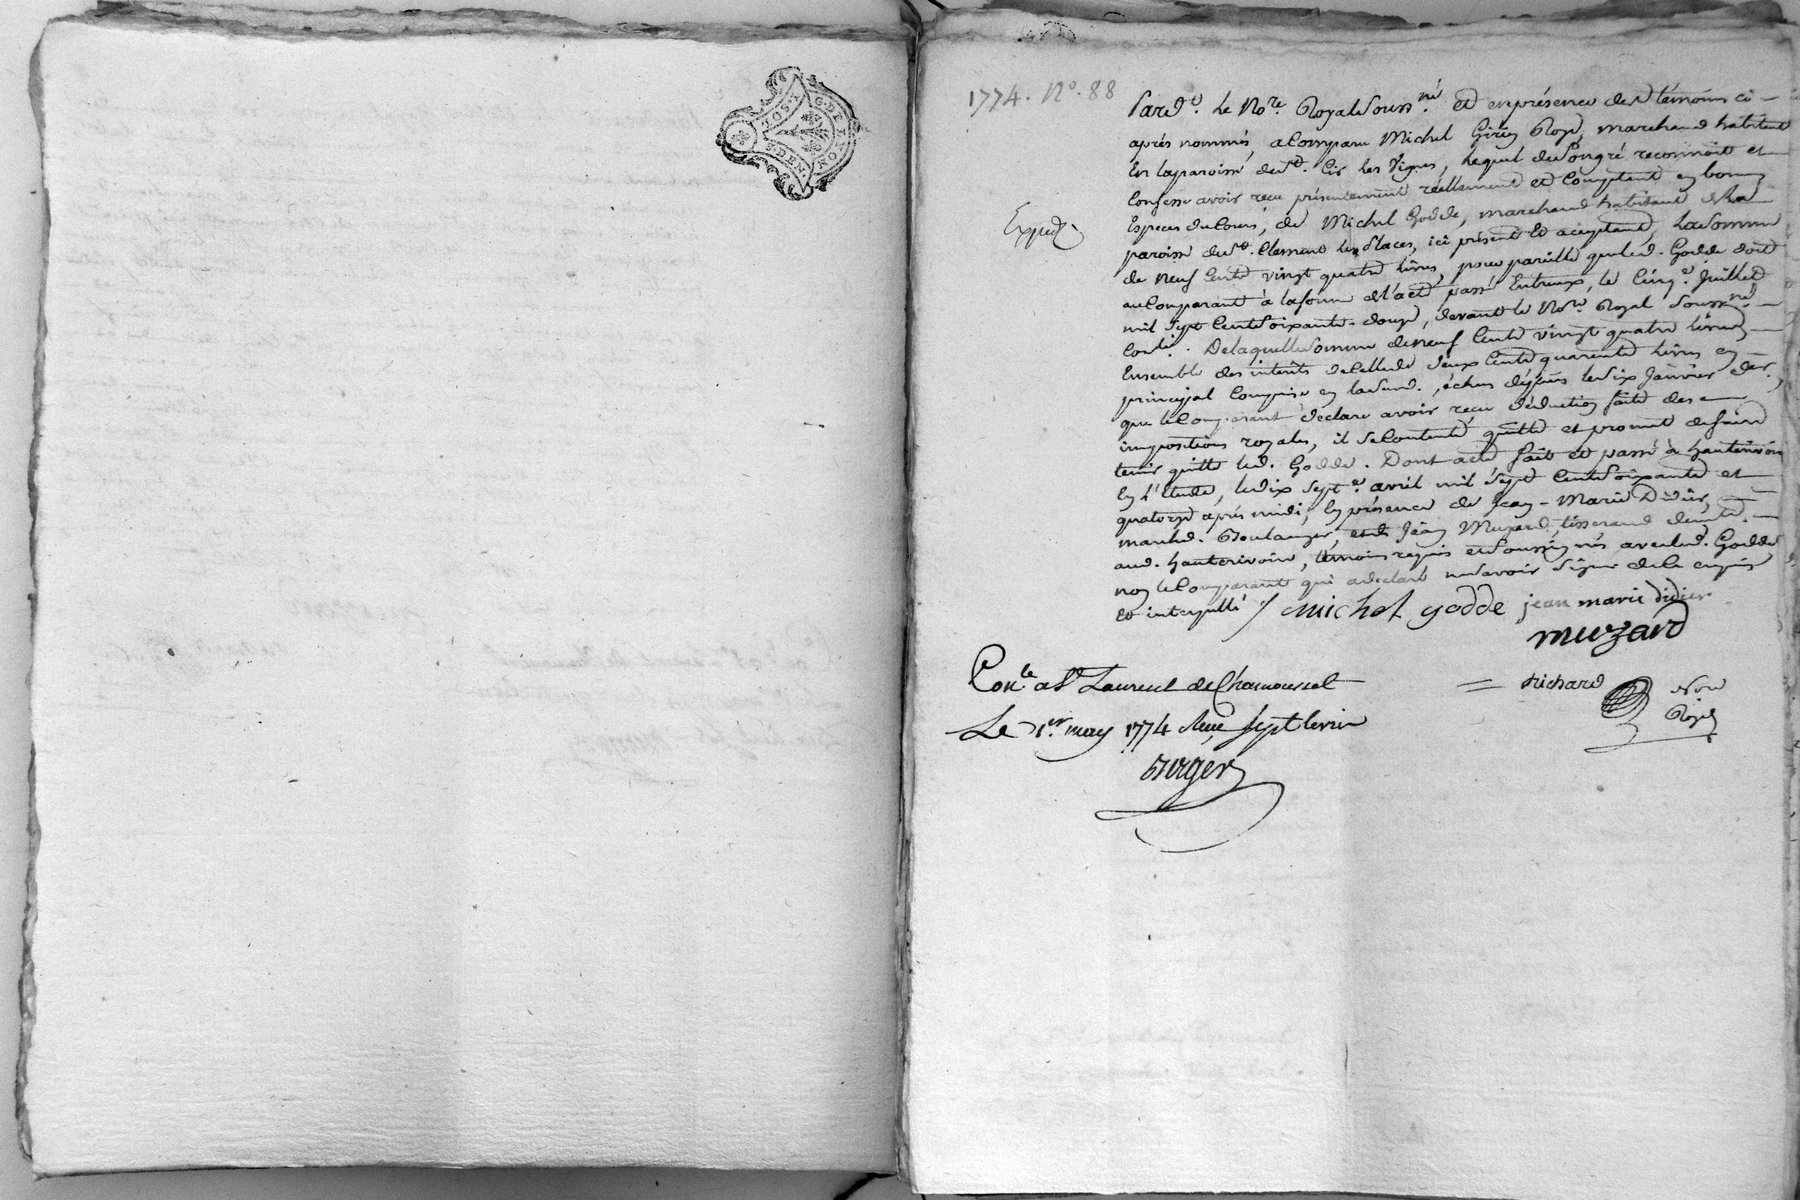 G. DE LYON
2. SOLS
G. DE L
1774. N°. 88
Pardt. Le Nore. Royal Soussné. et en présence des témoins ci-
après nommés, a Comparu Michel Giron Royé, marchand habitant
En la paroisse de St. Cir les Vignes, Lequel de Son gré reconnoit et
Confesse avoir reçu présentement réellement et Comptant en bonnes
Expedé
Especes du Cours, de Michel Godde, marchand habitant de la
paroisse de St. Clement les places, ici présent et acceptant, La Somme
de neuf Cents vingt quatre livres, pour pareille que led. Godde doit
au Comparant à la forme de l'acte passé Entreux, le Cinqe. Juillet
mil Sept Cent Soixante-douze, devant le Nore. Royal Soussné.
Contlé. De laquelle Somme de neuf Cents vingt quatre livres,
Ensemble des interêts de Celle de deux Cents quarante livres en
principal Comprise en lad. Somme, échus depuis le Six Janvier der.
que le Comparant déclare avoir reçu déduction faite des
impositions royales, il Se Contente, quitte et promet de faire
tenir quitte led. Godde. Dont acte fait et passé à hauterivoire
En l'Etude, le dix Septe. avril mil Sept Cent Soixante et
quatorze après midi, En présence de Jean-Marie Didier,
marchd. Boulanger, et de Jean Muzard, tisserand demt.
aud. hauterivoire, témoins requis et Soussignés avec led. Godde
non le Comparant qui a declaré ne Savoir Signer de ce enquis
et interpellé / michel godde jean marie didier
muzard
Conlé a St Laurent de Chamousset = Richard Nore
Le 1er. may 1774 Reçu Sept livres Royal
Berger